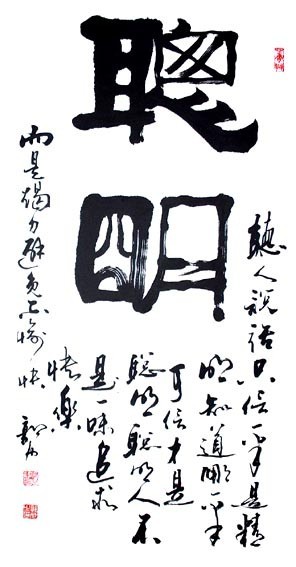 聰明
聽人說話只信一半是精
明知道哪一半
可信才是
聰明聰明人不
是一味追求
快樂
而是竭力避免不愉快